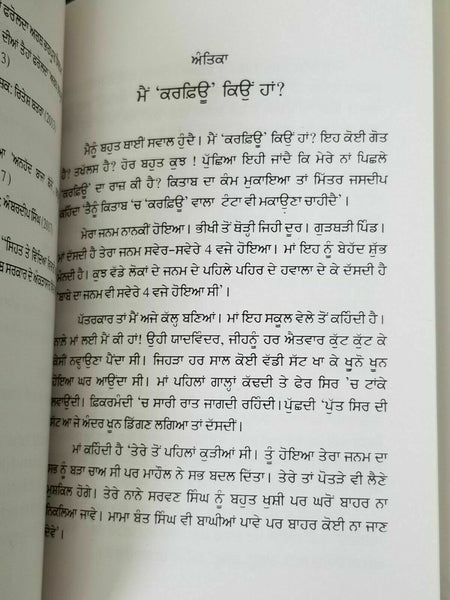 ਅੰਤਿਕਾ
ਮੈਂ ‘ਕਰਫ਼ਿਊ’ ਕਿਉਂ ਹਾਂ?
ਮੈਨੂੰ ਬਹੁਤ ਥਾਈਂ ਸਵਾਲ ਹੁੰਦੈ। ਮੈਂ ‘ਕਰਫ਼ਿਊ’ ਕਿਉਂ ਹਾਂ? ਇਹ ਕੋਈ ਗੋਤ
ਹੈ? ਤਖ਼ੱਲਸ ਹੈ? ਹੋਰ ਬਹੁਤ ਕੁਝ ! ਪੁੱਛਿਆ ਇਹੀ ਜਾਂਦੈ ਕਿ ਮੇਰੇ ਨਾਂ ਪਿਛਲੇ
‘ਕਰਫ਼ਿਊ’ ਦਾ ਰਾਜ਼ ਕੀ ਹੈ? ਕਿਤਾਬ ਦਾ ਕੰਮ ਮੁਕਾਇਆ ਤਾਂ ਮਿੱਤਰ ਜਸਦੀਪ
ਕਹਿੰਦਾ ‘ਤੈਨੂੰ ਕਿਤਾਬ ’ਚ ‘ਕਰਫ਼ਿਊ’ ਵਾਲਾ ਟੰਟਾ ਵੀ ਮਕਾਉਣਾ ਚਾਹੀਦੈ’।
ਮੇਰਾ ਜਨਮ ਨਾਨਕੀਂ ਹੋਇਆ। ਭੀਖੀ ਤੋਂ ਥੋੜ੍ਹੀ ਜਿਹੀ ਦੂਰ। ਗੁੜਥੜੀ ਪਿੰਡ।
ਮਾਂ ਦੱਸਦੀ ਹੈ ਤੇਰਾ ਜਨਮ ਸਵੇਰ-ਸਵੇਰੇ 4 ਵਜੇ ਹੋਇਆ। ਮਾਂ ਇਹ ਨੂੰ ਬੇਹੱਦ ਸ਼ੁੱਭ
ਮੰਨਦੀ ਹੈ। ਕੁਝ ਵੱਡੇ ਲੋਕਾਂ ਦੇ ਜਨਮ ਦੇ ਪਹਿਲੇ ਪਹਿਰ ਦੇ ਹਵਾਲਾ ਦੇ ਕੇ ਦੱਸਦੀ ਹੈ
‘ਬਾਬੇ ਦਾ ਜਨਮ ਵੀ ਸਵੇਰੇ 4 ਵਜੇ ਹੋਇਆ ਸੀ’।
ਪੱਤਰਕਾਰ ਤਾਂ ਮੈਂ ਅਜੇ ਕੱਲ੍ਹ ਬਣਿਆਂ। ਮਾਂ ਇਹ ਸਕੂਲ ਵੇਲੇ ਤੋਂ ਕਹਿੰਦੀ ਹੈ।
ਨਾਲੇ ਮਾਂ ਲਈ ਮੈਂ ਕੀ ਹਾਂ! ਉਹੀ ਯਾਦਵਿੰਦਰ, ਜੀਹਨੂੰ ਹਰ ਐਤਵਾਰ ਕੁੱਟ ਕੁੱਟ ਕੇ
ਕੇਸੀਂ ਨਵ੍ਹਾਉਣਾ ਪੈਂਦਾ ਸੀ। ਜਿਹੜਾ ਹਰ ਸਾਲ ਕੋਈ ਵੱਡੀ ਸੱਟ ਖਾ ਕੇ ਖ਼ੂਨੋ ਖ਼ੂਨ
ਹੋਇਆ ਘਰ ਆਉਂਦਾ ਸੀ। ਮਾਂ ਪਹਿਲਾਂ ਗਾਲ੍ਹਾਂ ਕੱਢਦੀ ਤੇ ਫੇਰ ਸਿਰ ’ਚ ਟਾਂਕੇ
ਲਵਾਉਂਦੀ। ਫ਼ਿਕਰਮੰਦੀ ’ਚ ਸਾਰੀ ਰਾਤ ਜਾਗਦੀ ਰਹਿੰਦੀ। ਪੁੱਛਦੀ ‘ਪੁੱਤ ਸਿਰ ਦੀ
ਸੱਟ ਆ ਜੇ ਅੰਦਰ ਖ਼ੂਨ ਡਿੱਗਣ ਲਗਿਆ ਤਾਂ ਦੱਸਦੀਂ’।
ਮਾਂ ਕਹਿੰਦੀ ਹੈ ‘ਤੇਰੇ ਤੋਂ ਪਹਿਲਾਂ ਕੁੜੀਆਂ ਸੀ। ਤੂੰ ਹੋਇਆ ਤੇਰਾ ਜਨਮ ਦਾ
ਸਭ ਨੂੰ ਬੜਾ ਚਾਅ ਸੀ ਪਰ ਮਾਹੌਲ ਨੇ ਸਭ ਬਦਲ ਦਿੱਤਾ। ਤੇਰੇ ਤਾਂ ਪੋਤੜੇ ਵੀ ਲੈਣੇ
ਮੁਸ਼ਕਿਲ ਹੋਗੇ। ਤੇਰੇ ਨਾਨੇ ਸਰਵਣ ਸਿੰਘ ਨੂੰ ਬਹੁਤ ਖੁਸ਼ੀ ਪਰ ਘਰੋਂ ਬਾਹਰ ਨਾ
ਨਿਕਲਿਆ ਜਾਵੇ। ਮਾਮਾ ਬੰਤ ਸਿੰਘ ਵੀ ਬਾਘੀਆਂ ਪਾਵੇ ਪਰ ਬਾਹਰ ਕੋਈ ਨਾ ਜਾਣ
ਦੇਵੇ’।